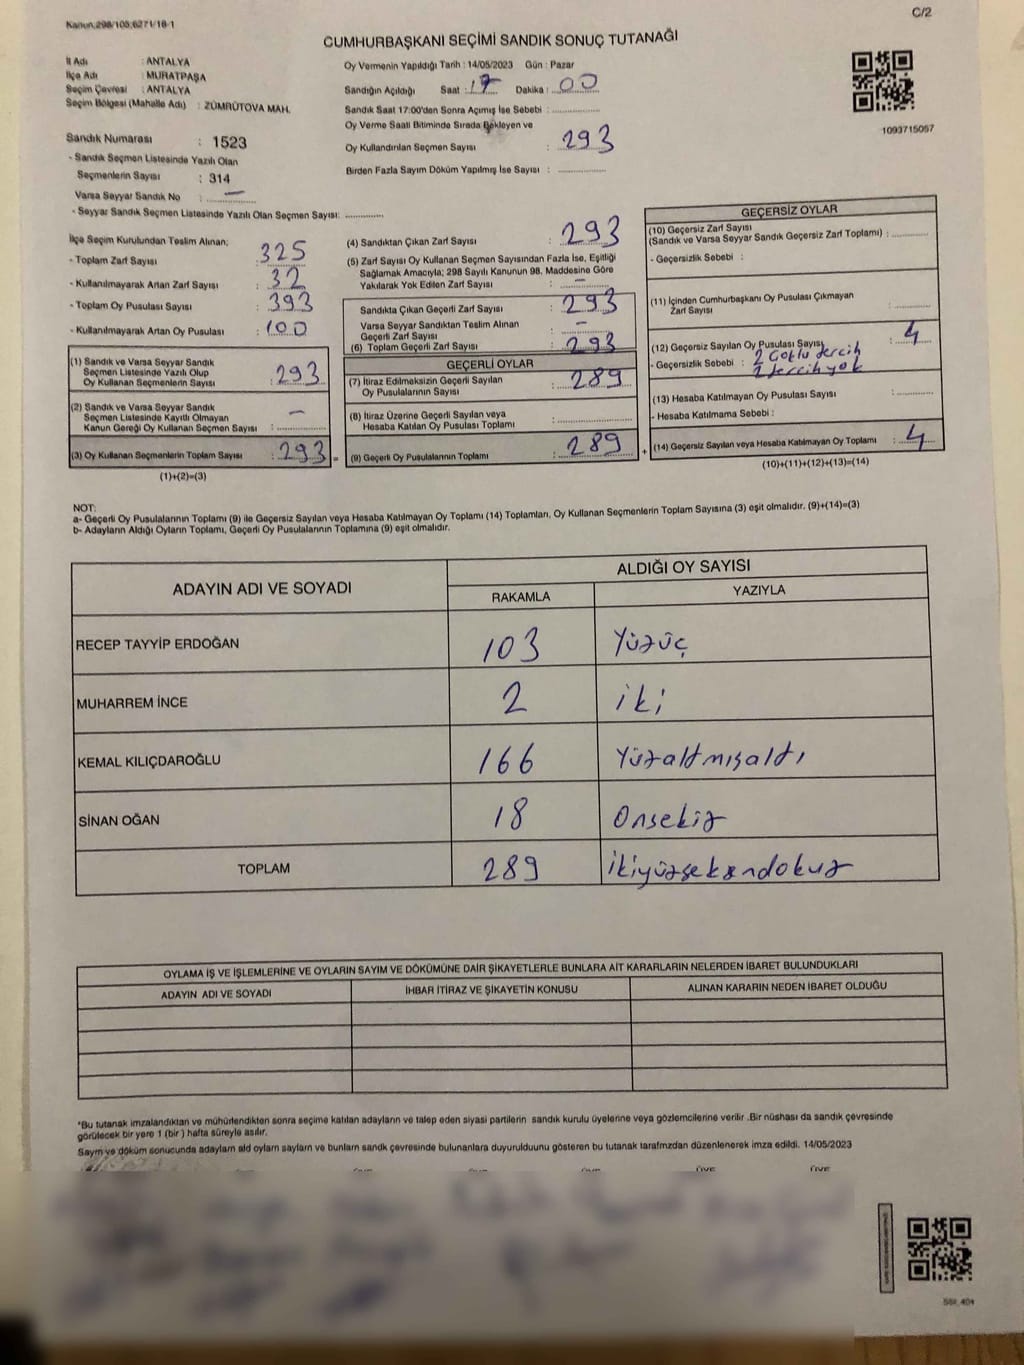 Kanun:298/105;6271/16-1
C/2
CUMHURBAŞKANI SEÇİMİ SANDIK SONUÇ TUTANAĞI
İl Adı : ANTALYA
İlçe Adı : MURATPAŞA
Seçim Çevresi : ANTALYA
Seçim Bölgesi (Mahalle Adı) : ZÜMRÜTOVA MAH.
Oy Vermenin Yapıldığı Tarih : 14/05/2023 Gün : Pazar
Sandığın Açıldığı Saat : 17 Dakika : 00
Sandık Saat 17:00'den Sonra Açımış İse Sebebi :
Oy Verme Saati Bitiminde Sırada Bekleyen ve
Oy Kullandırılan Seçmen Sayısı : 293
Birden Fazla Sayım Döküm Yapılmış İse Sayısı :
1093715057
Sandık Numarası : 1523
- Sandık Seçmen Listesinde Yazılı Olan
Seçmenlerin Sayısı : 314
Varsa Seyyar Sandık No : —
- Seyyar Sandık Seçmen Listesinde Yazılı Olan Seçmen Sayısı:
İlçe Seçim Kurulundan Teslim Alınan;
- Toplam Zarf Sayısı : 325
- Kullanılmayarak Artan Zarf Sayısı : 32
- Toplam Oy Pusulası Sayısı : 393
- Kullanılmayarak Artan Oy Pusulası : 100
(1) Sandık ve Varsa Seyyar Sandık
Seçmen Listesinde Yazılı Olup
Oy Kullanan Seçmenlerin Sayısı : 293
(2) Sandık ve Varsa Seyyar Sandık
Seçmen Listesinde Kayıtlı Olmayan
Kanun Gereği Oy Kullanan Seçmen Sayısı : —
(3) Oy Kullanan Seçmenlerin Toplam Sayısı : 293
(1)+(2)=(3)
(4) Sandıktan Çıkan Zarf Sayısı : 293
(5) Zarf Sayısı Oy Kullanan Seçmen Sayısından Fazla İse, Eşitliği
Sağlamak Amacıyla; 298 Sayılı Kanunun 98. Maddesine Göre
Yakılarak Yok Edilen Zarf Sayısı : —
Sandıkta Çıkan Geçerli Zarf Sayısı : 293
Varsa Seyyar Sandıktan Teslim Alınan
Geçerli Zarf Sayısı : —
(6) Toplam Geçerli Zarf Sayısı : 293
GEÇERLİ OYLAR
(7) İtiraz Edilmeksizin Geçerli Sayılan
Oy Pusulalarının Sayısı : 289
(8) İtiraz Üzerine Geçerli Sayılan veya
Hesaba Katılan Oy Pusulası Toplamı :
(9) Geçerli Oy Pusulalarının Toplamı : 289
GEÇERSİZ OYLAR
(10) Geçersiz Zarf Sayısı
(Sandık ve Varsa Seyyar Sandık Geçersiz Zarf Toplamı) :
- Geçersizlik Sebebi :
(11) İçinden Cumhurbaşkanı Oy Pusulası Çıkmayan
Zarf Sayısı :
(12) Geçersiz Sayılan Oy Pusulası Sayısı : 4
- Geçersizlik Sebebi : 2 Çoklu tercih
2 tercih yok
(13) Hesaba Katılmayan Oy Pusulası Sayısı :
- Hesaba Katılmama Sebebi :
(14) Geçersiz Sayılan veya Hesaba Katılmayan Oy Toplamı : 4
(10)+(11)+(12)+(13)=(14)
NOT:
a- Geçerli Oy Pusulalarının Toplamı (9) ile Geçersiz Sayılan veya Hesaba Katılmayan Oy Toplamı (14) Toplamları, Oy Kullanan Seçmenlerin Toplam Sayısına (3) eşit olmalıdır. (9)+(14)=(3)
b- Adayların Aldığı Oyların Toplamı, Geçerli Oy Pusulalarının Toplamına (9) eşit olmalıdır.
ADAYIN ADI VE SOYADI
ALDIĞI OY SAYISI
RAKAMLA YAZIYLA
RECEP TAYYİP ERDOĞAN 103 Yüzüç
MUHARREM İNCE 2 iki
KEMAL KILIÇDAROĞLU 166 Yüzaltmışaltı
SİNAN OĞAN 18 Onsekiz
TOPLAM 289 ikiyüzseksendokuz
OYLAMA İŞ VE İŞLEMLERİNE VE OYLARIN SAYIM VE DÖKÜMÜNE DAİR ŞİKAYETLERLE BUNLARA AİT KARARLARIN NELERDEN İBARET BULUNDUKLARI
ADAYIN ADI VE SOYADI İHBAR İTİRAZ VE ŞİKAYETİN KONUSU ALINAN KARARIN NEDEN İBARET OLDUĞU
*Bu tutanak imzalandıktan ve mühürlendikten sonra seçime katılan adayların ve talep eden siyasi partilerin sandık kurulu üyelerine veya gözlemcilerine verilir .Bir nüshası da sandık çevresinde
görülecek bir yere 1 (bir ) hafta süreyle asılır.
Sayım ve döküm sonucunda adayların ald oylarn sayıların ve bunların sandk çevresinde bulunanlara duyurulduunu gösteren bu tutanak tarafmzdan düzenlenerek imza edildi. 14/05/2023
ÜYE ÜYE